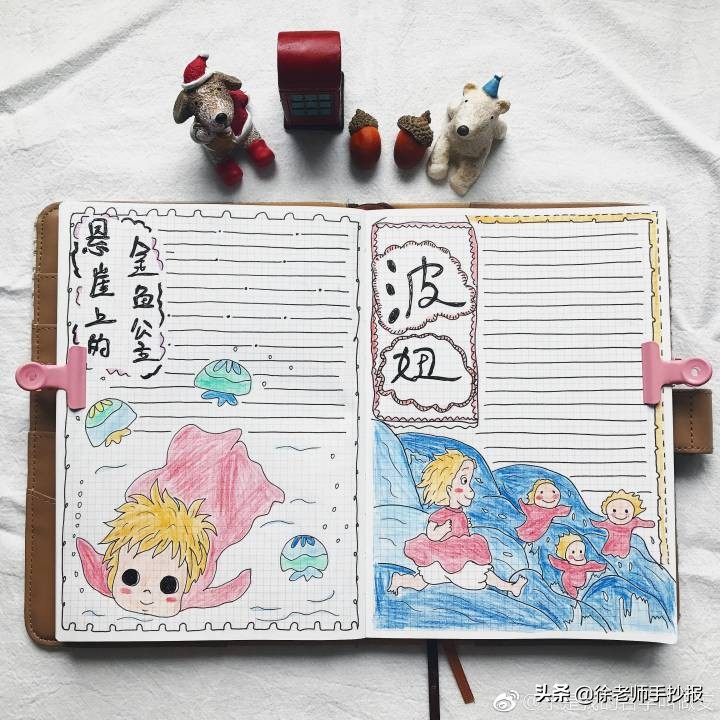 悬崖上的
金鱼公主
波
妞
头条 @徐老师手抄报